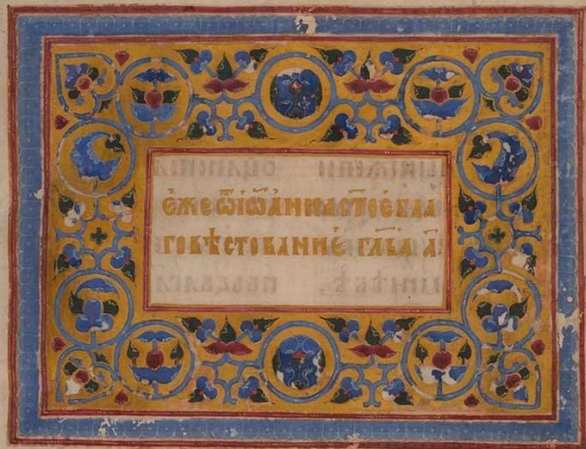 єже ѿ іѡанна ст҃ое бла
говѣстованиє гл҃ва а҃